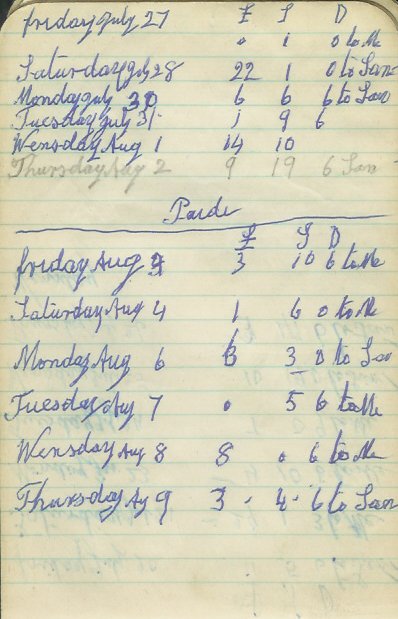 friday July 27 £ S D
0 1 0 to Me
Saturday July 28 22 1 0 to San
Monday July 30 6 6 6 to San
Tuesday July 31 1 9 6
Wensday Aug 1 14 10
Thursday Aug 2 9 19 6 San
Paide
£ S D
friday Aug 3 10 6 to Me
Saturday Aug 4 1 6 0 to Me
Monday Aug 6 3 0 to San
Tuesday Aug 7 . 5 6 to Me
Wensday Aug 8 8 . 6 to Me
Thursday Ag 9 3 . 4 . 6 to San